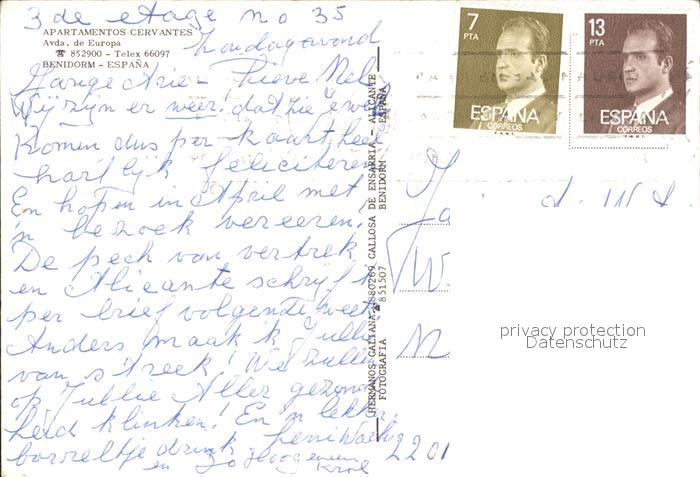 3de etage no 35
APARTAMENTOS CERVANTES
Avda. de Europa
☎ 852900 - Telex 66097
BENIDORM - ESPAÑA
Zondagavond
Lange Arie - Lieve Nel
Wij zijn er weer! dat zie
Komen dus per kaart heel
hartlijk feliciteren
En hopen in April met
'n bezoek vereeren!
De pech van vertrek
en Alicante schrijf ik
per brief volgende week
Anders maak ik Jullie
van streek! We zullen
op Jullie Aller gezond
heid klinken! En 'n lekker
borreltje drink
en Jo Hoogeveen
Krol
HERMANOS GALIANA, 880269 CALLOSA DE ENSARRIA - ALICANTE -
FOTOGRAFIA ☎ 851507 BENIDORM ESPAÑA
7
PTA
ESPAÑA
CORREOS
F.N.M.T.
13
PTA
ESPAÑA
CORREOS
F.N.M.T.
W.
2201
privacy protection
Datenschutz